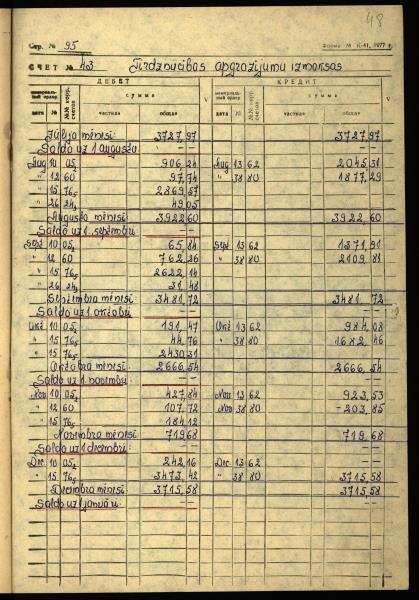 48
Стр. № 95 Форма № К-41, 1977 г.
СЧЕТ № 43 Tirdzniecības apgrozījumu izmaksas
ДЕБЕТ КРЕДИТ
мемориальный ордер №№ корр. счетов сумма V мемориальный ордер №№ корр. счетов сумма V
дата № частная общая дата № частная общая
Jūlija mēnesī 3727,97 3727,97
Saldo uz 1 augustu — —
Aug 10 05 906,24 Aug 13 62 2045,31
" 12 60 97,74 " 38 80 1877,29
" 15 76 2869,57
" 26 24 49,05
Augusta mēnesī 3922,60 3922,60
Saldo uz 1. septembri — —
Sept 10 05 65,84 Sept 13 62 1371,91
" 12 60 762,26 " 38 80 2109,81
" 15 76 2622,14
" 26 24 31,48
Septembra mēnesī 3481,72 3481,72
Saldo uz 1 oktobri — —
Okt 10 05 191,47 Okt 13 62 984,08
" 15 76 44,76 " 38 80 1682,46
" 15 76 2430,31
Oktobra mēnesī 2666,54 2666,54
Saldo uz 1 novembri — —
Nov 10 05 427,84 Nov 13 62 923,53
" 12 60 107,72 Nov 38 80 -203,85
" 15 76 184,12
Novembra mēnesī 719,68 719,68
Saldo uz 1 decembri — —
Dec 10 05 242,16 Dec 13 62 —
" 15 76 3473,42 " 38 80 3715,58
Decembra mēnesī 3715,58 3715,58
Saldo uz 1 janvāri — —